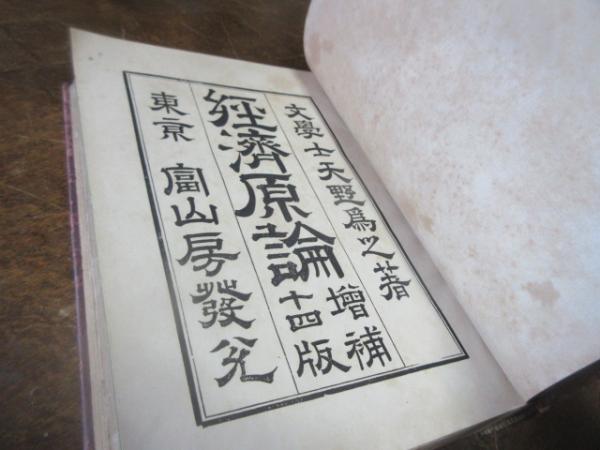 文學士天野爲之著
經濟原論
增補
十四版
東京 冨山房發兌